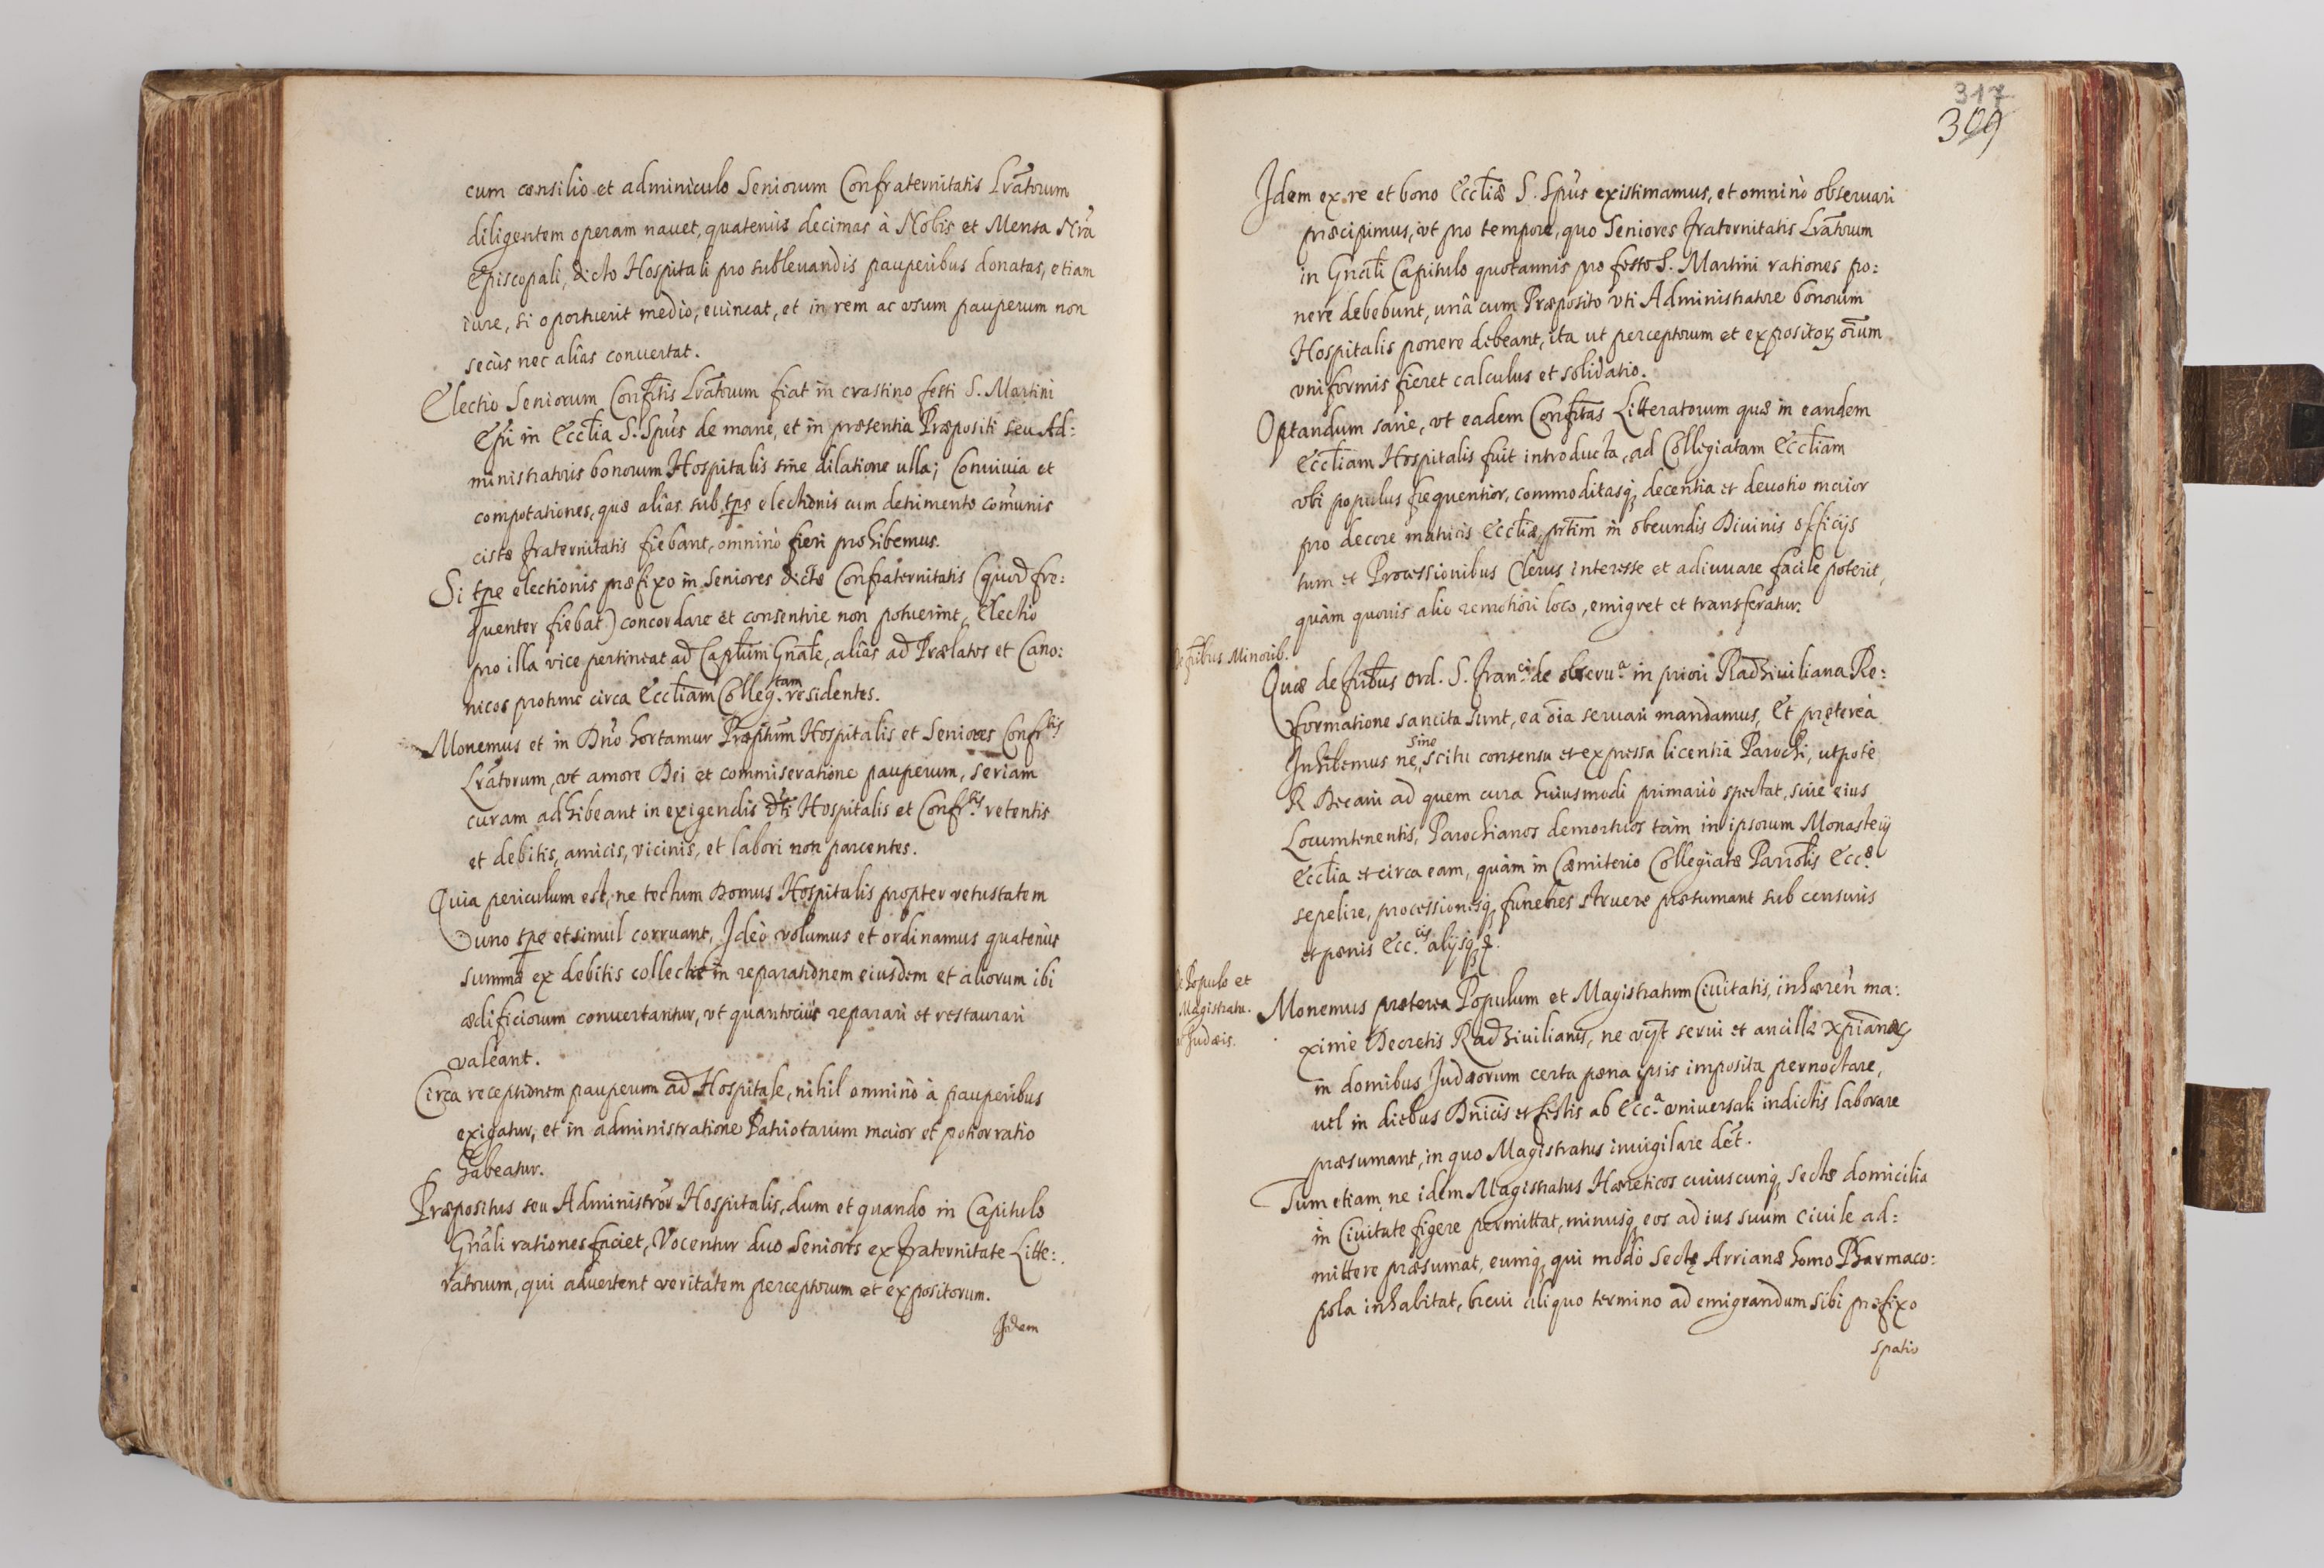 cum consilio et adminiculo Seniorum Confraternitatis Lrãtorum
diligentem operam nauet, quatenùs decimas à Nobis et Mensa Nrã
Episcopali, dicto Hospitali pro subleuandis pauperibus donatas, etiam
iure, si oportuerit medio, euincat, et in rem ac usum pauperum non
secùs nec aliâs conuertat.
Electio Seniorum Confr̃tis Lrãtorum fiat in crastino festi S. Martini
Epi in Eccl̃ia S. Spũs de mane, et in præsentia Præpositi seu Ad:
ministratoris bonorum Hospitalis sine dilatione ulla; Conuiuia et
compotationes, quæ aliâs sub tp̃s electionis cum detrimento comũnis
cistæ fraternitatis fiebant, omninò fieri prohibemus.
Si tp̃e electionis præfixo in Seniores dictæ Confraternitatis (quod fre:
quenter fiebat) concordare et consentire non potuerint, Electio
pro illa vice pertineat ad Capl̃um Gñale, aliâs ad Prælatos et Cano:
nicos protunc circa Eccl̃iam Colleg.tam residentes.
Monemus et in Dño hortamur Præpitum Hospitalis et Seniores Confr.tis
Lrãtorum, vt amore Dei et commiseratione pauperum, seriam
curam adhibeant in exigendis dti Hospitalis et Confr.tis retentis
et debitis, amicis, vicinis, et labori non parcentes.
Quia periculum est, ne tectum Domus Hospitalis propter vetustatem
uno tp̃e et simul corruant, Ideò volumus et ordinamus quatenùs
summa ex debitis collecta in reparationem eiusdem et aliorum ibi
ædificiorum conuertantur, vt quantociùs reparari et restaurari
valeant.
Circa receptionem pauperum ad Hospitale, nihil omninò à pauperibus
exigatur, et in administratione Patriotarum maior et potior ratio
habeatur.
Præpositus seu Administrõr Hospitalis, dum et quando in Capitulo
Gñali rationes faciet, Vocentur duo Seniores ex fraternitate Litte:
ratorum, qui aduertent veritatem perceptorum et expositorum.
Idem
317
309
Idem ex re et bono Eccl̃iæ S. Spũs existimamus, et omninò obseruari
præcipimus, vt pro tempore, quo Seniores fraternitatis Lrãtorum
in Gñali Capitulo quotannis pro festo S. Martini rationes po:
nere debebunt, unâ cum Præposito vti Administratore bonorum
Hospitalis ponere debeant, ita ut perceptorum et expositorꝫ oĩum
vniformis fieret calculus et solidatio.
Optandum sanè, vt eadem Confr̃tas Litteratorum quæ in eandem
Eccl̃iam Hospitalis fuit introducta, ad Collegiatam Eccl̃iam
vbi populus frequentior, commoditasqꝫ decentia et deuotio maior
pro decore matricis Eccl̃iæ, pr̃tim in obeundis Diuinis officijs
tum et Processionibus Clerus interesse et adiuuare facilè poterit,
quàm quouis alio remotiori loco, emigret et transferatur.
De fr̃ibus Minorib.
Quæ de fr̃ibus Ord. S. Fran.ci de obseru.a in priori Radziuiliana Re:
formatione sancita sunt, ea oĩa seruari mandamus, Et prętereà
Inhibemus ne sine scitu consensu et expressa licentia Parochi, utpote
R Decani ad quem cura huiusmodi primariò spectat, siue eius
Locumtenentis, Parochianos demortuos tàm in ipsorum Monasterij
Eccl̃ia et circa eam, quàm in Cæmiterio Collegiatæ Parrolis Ecc.æ
sepelire, processionesqꝫ funebres struere præsumant sub censuris
et pœnis Ecc.cis alijsqꝫ
De Populo et
Magistratu.
et Iudæis.
Monemus præterea Populum et Magistratum Ciuitatis, inhæreñ ma:
ximè Decretis Radziuilianis, ne vt serui et ancillæ xpiãnæ
in domibus Iudæorum certa pœna ipsis imposita pernoctare,
uel in diebus Dnicis et festis ab Ecc.a vniuersali indictis laborare
præsumant, in quo Magistratus inuigilare det.
Tum etiam ne idem Magistratus Hæreticos cuiuscunqꝫ sectæ domicilia
in Ciuitate figere permittat, minusqꝫ eos ad ius suum Ciuile ad:
mittere præsumat, eumqꝫ qui modò Sectę Arrianæ homo Pharmaco:
pola inhabitat, breui aliquo termino ad emigrandum sibi præfixo
spatio